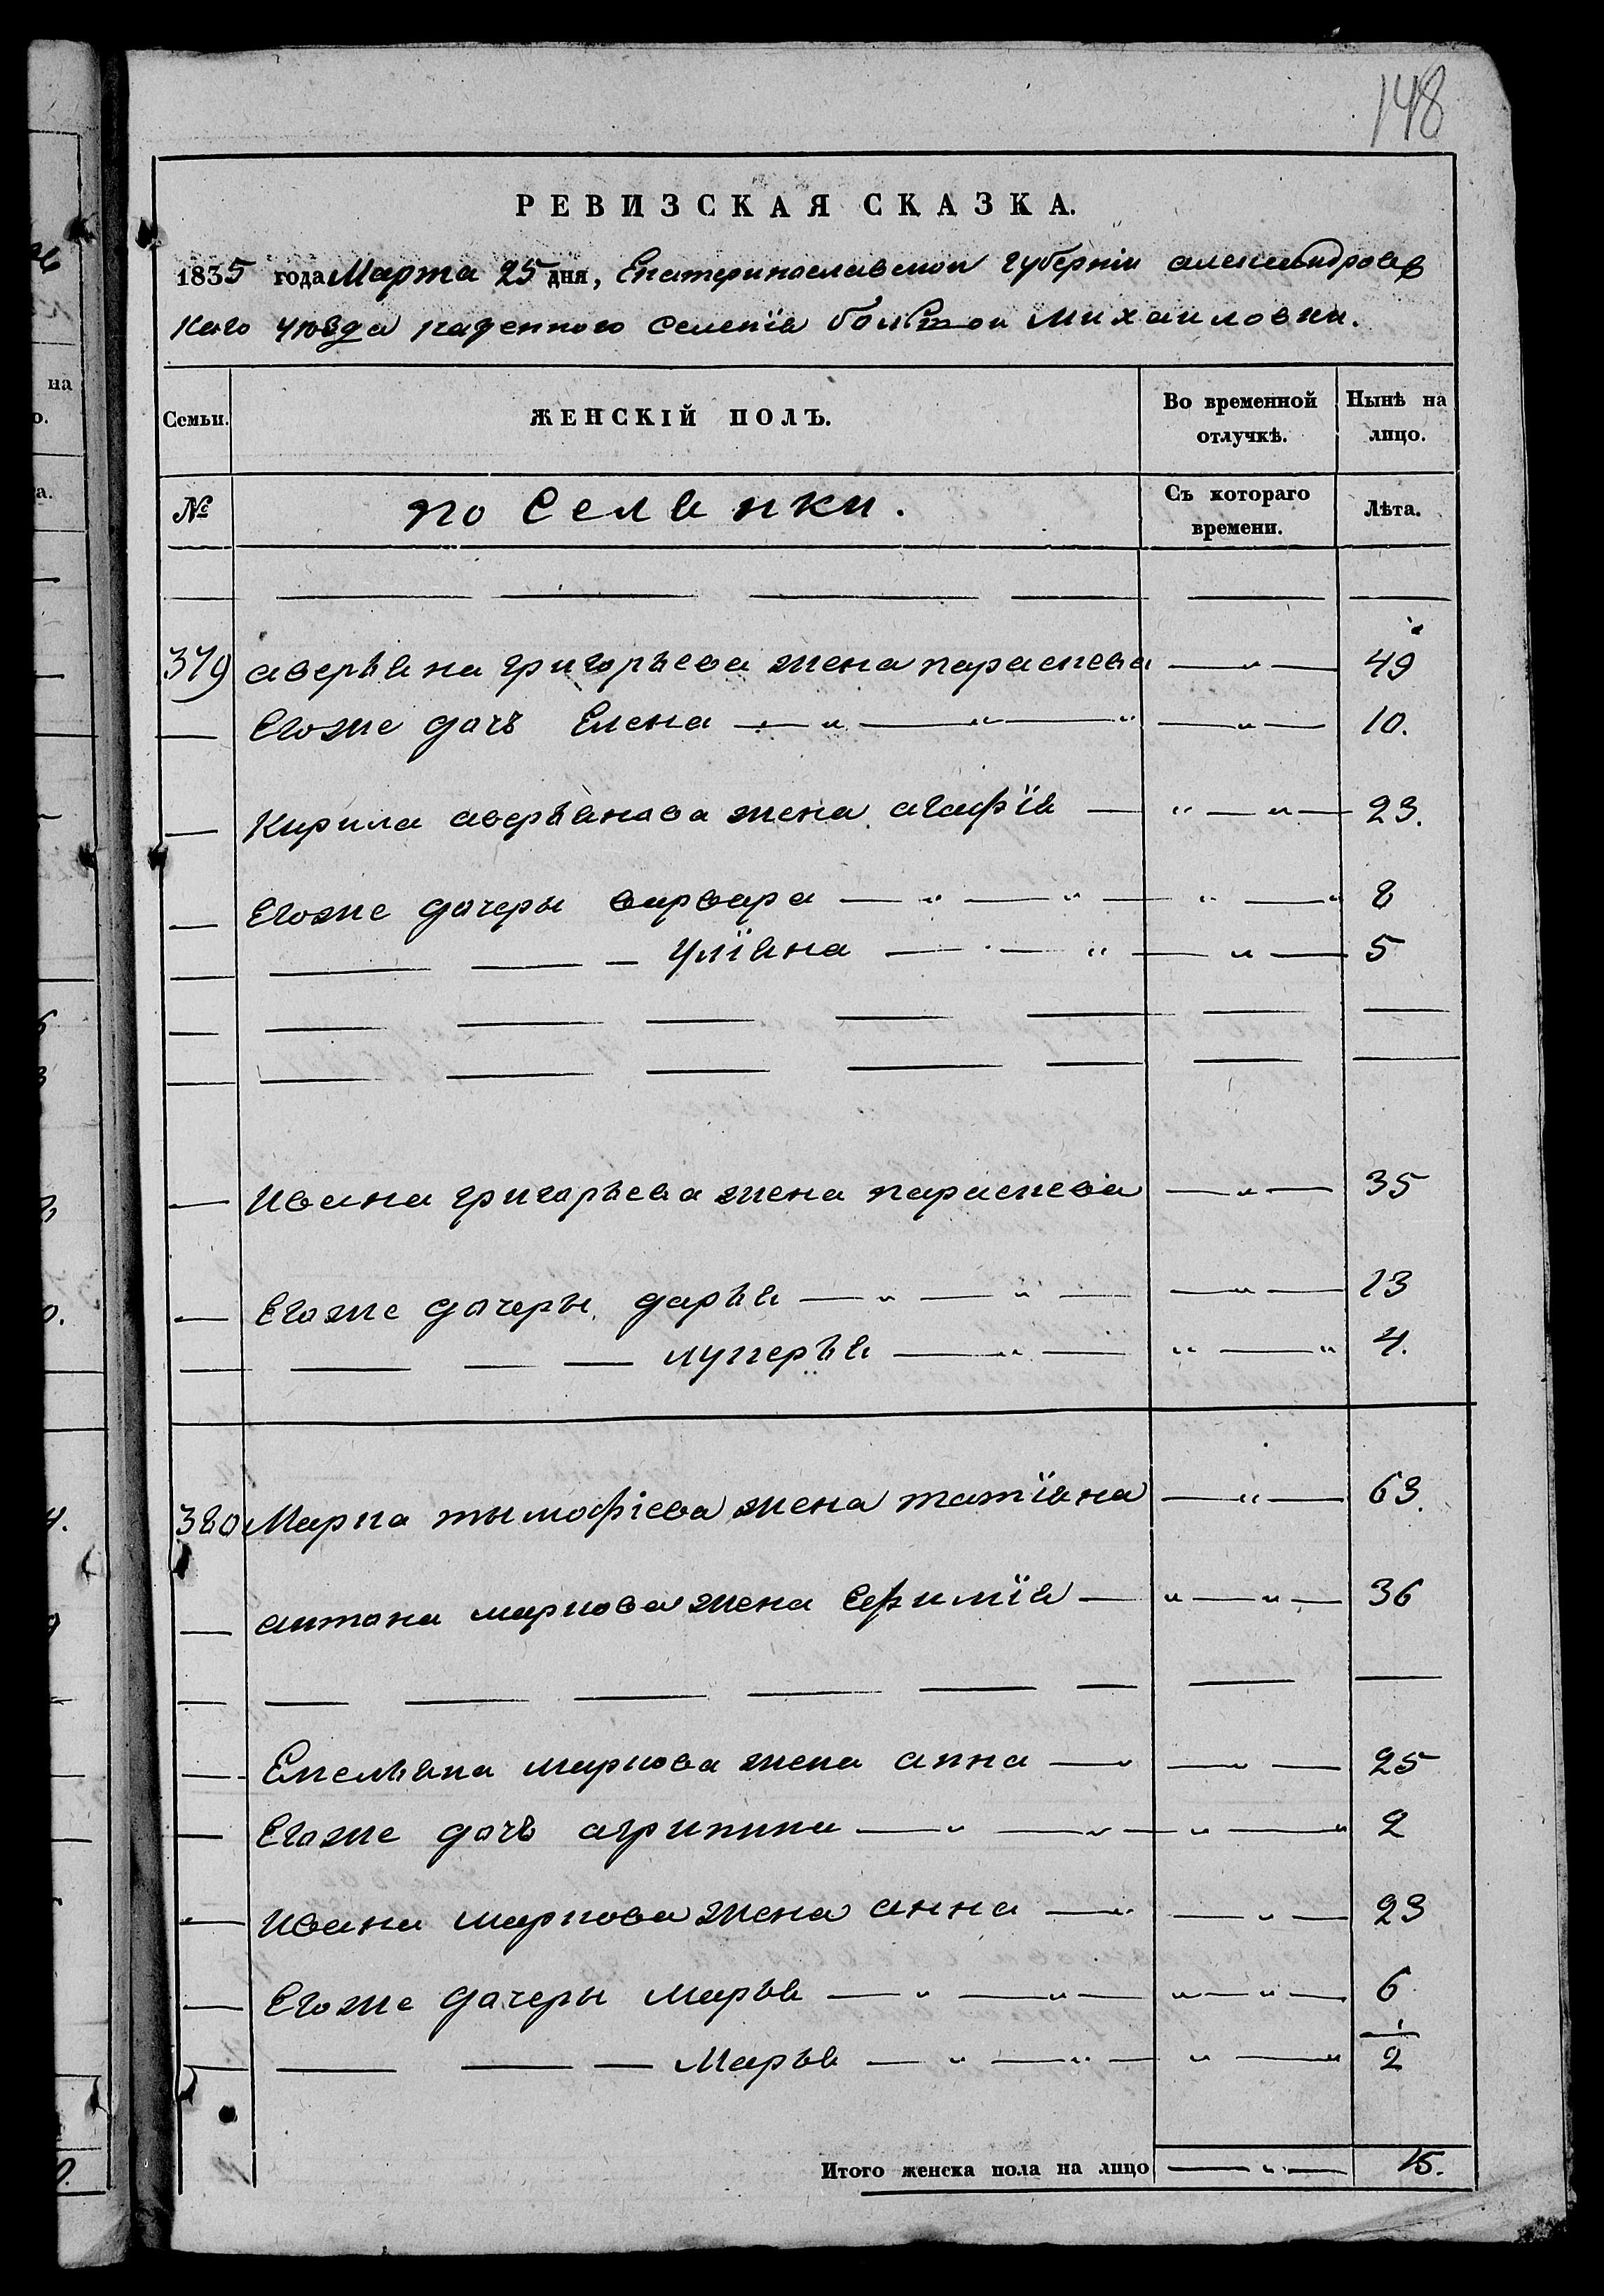 148
РЕВИЗСКАЯ СКАЗКА.
1835 года Марта 25 дня, Екатеринославскои губерніи александровс
каго уѣзда казенного Селенія болшои михаиловки.
Семьи. ЖЕНСКІЙ ПОЛЪ. Во временной отлучкѣ. Нынѣ на лицо.
№ поселянки. Съ котораго времени. Лѣта.
379 аверъяна григоръева жена параскева — " — 49
Егоже дочъ Елена — " — " — " — " — 10.
Кирила аверъянова жена агафія — " — " — 23.
Егоже дочеры варвара — " — " — " — " 8
— — — Уліяна — " — " — " — 5
Ивана григоръева жена параскева — " — 35
Егоже дочеры даръя — " — " — " — 13
— — — лукеръя — " — " — " 4.
380 Марка тымофіева жена татіяна — " — 63.
антона маркова жена Ефимія — " — " — 36
Емельяна маркова жена анна — " — " — 25
Егоже дочъ агрипина — " — " — " — " 2
Ивана маркова жена анна — " — " — 23
Егоже дочеры маръя — " — " — " — " — 6
— — — Маръя — " — " — " — " 2
Итого женска пола на лицо — " — 15.
на
о.
а.